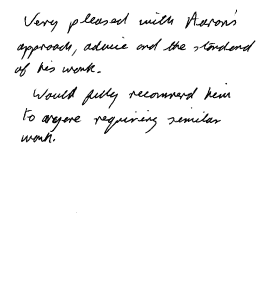 Very pleased with Aaron's
approach, advice and the standard
of his work.
Would fully recommend him
to anyone requiring similar
work.